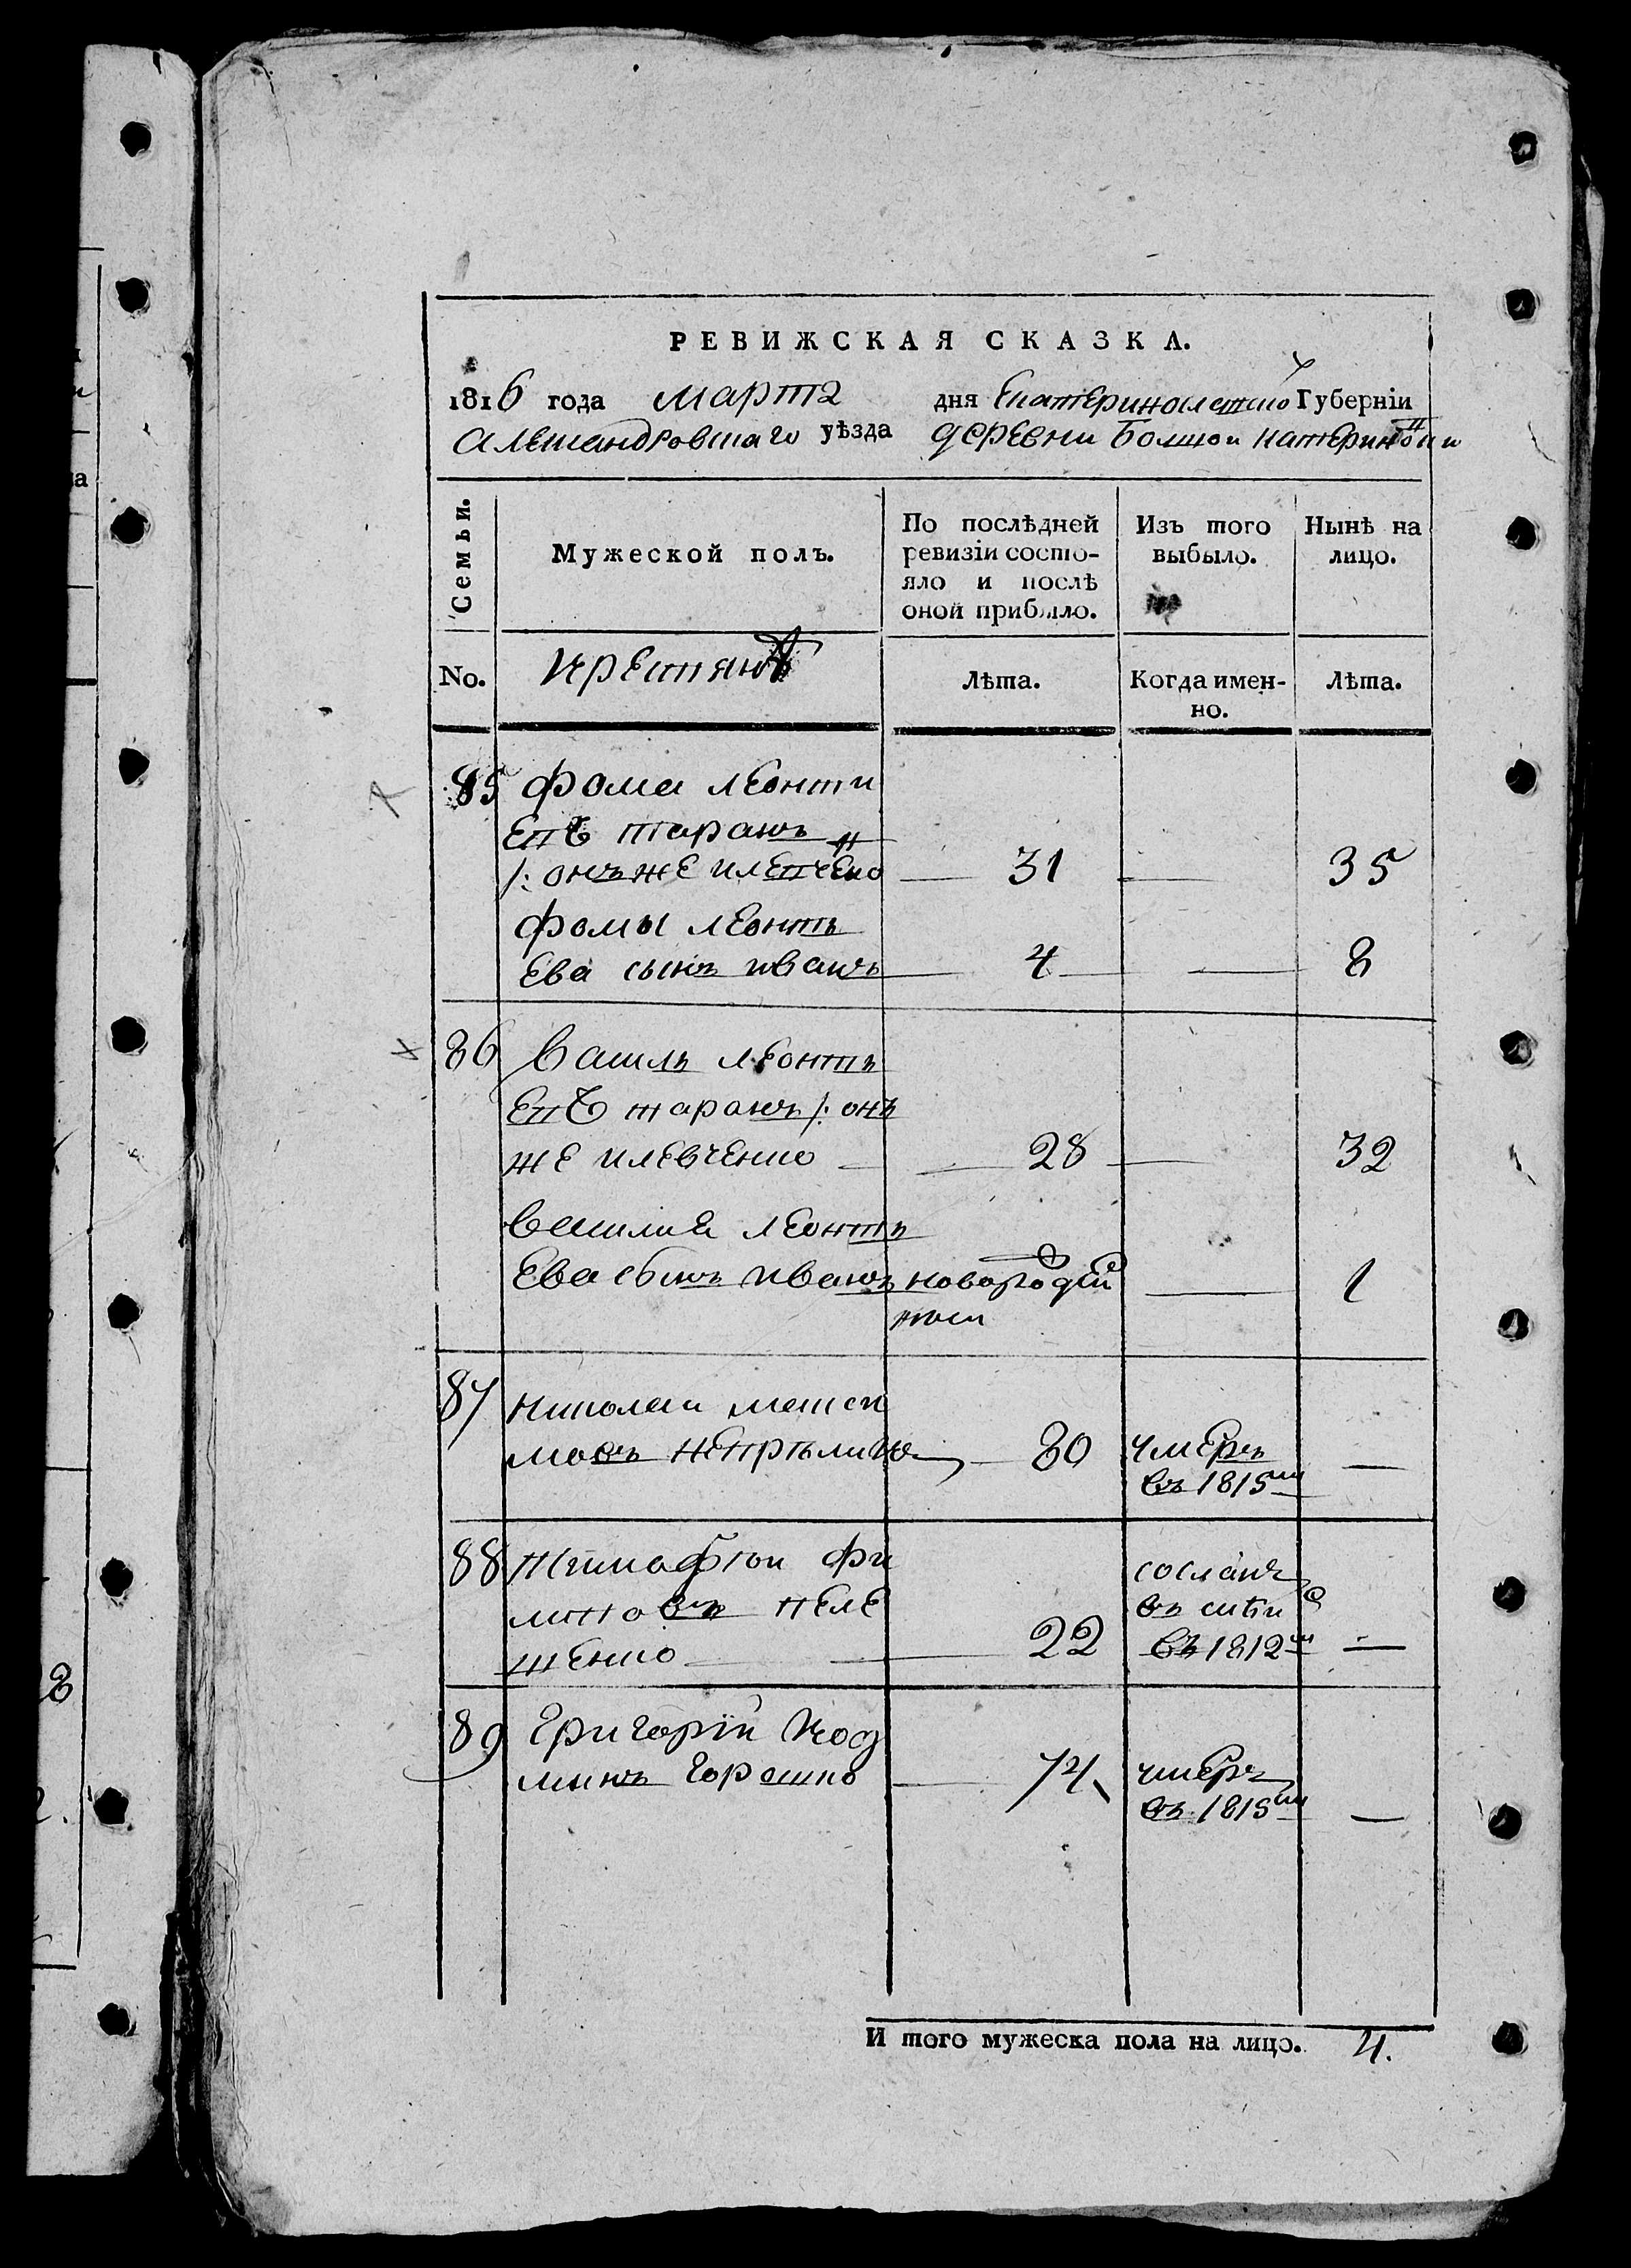 РЕВИЖСКАЯ СКАЗКА.
1816 года марта дня Екатеринославской Губернїи
Александровскаго уѣзда деревни Болшои катериновки
Семьи.
Мужеской полъ.
По послѣдней
ревизїи состо-
яло и послѣ
оной прибыло.
Изъ того
выбыло.
Нынѣ на
лицо.
No.
Крестянъ
Лѣта.
Когда имен-
но.
Лѣта.
85 Фома Леонти
евъ таранъ
/: онъ же клевченко 31 35
Фомы Леонть
ева сынъ иванъ 4 8
86 Василь Леонть
евъ таранъ /: онъ
же клевченко 28 32
Василия Леонть
ева сынъ иванъ новорожден 1
ныи
87 николаи макси
мовъ 80 умеръ
въ 1815м
88 фи
липовъ пеле
шенко 22 сосланъ
въ 1812м
89 Григорїй Коз
минъ Горашко 74 умеръ
въ 1815м
И того мужеска пола на лицо. 4.